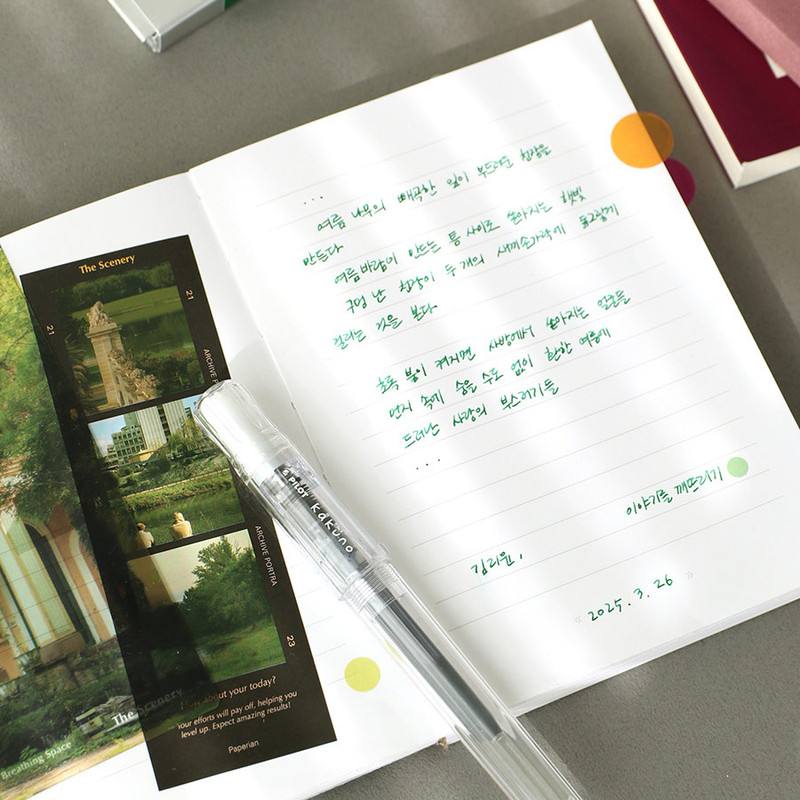 The Scenery
21
21
ARCHIVE
ARCHIVE PORTRA
23
about your today?
Your efforts will pay off, helping you
level up. Expect amazing results!
Paperian
The Scenery
Breathing Space
PILOT kakuno
...
여름 나무의 빼곡한 잎이 부드러운 천장은
만든다
여름바람이 만드는 틈 사이로 쏟아지는 햇빛
구멍 난 천장이 두 개의 새끼손가락에 동그랗게
걸리는 것을 본다
초록 불이 켜지면 사방에서 쏟아지는 얼굴들
먼지 속에 숨을 수도 없이 환한 여름에
드러난 사랑의 부스러기들
...
이야기를 깨뜨리기
김리윤,
2025. 3. 26